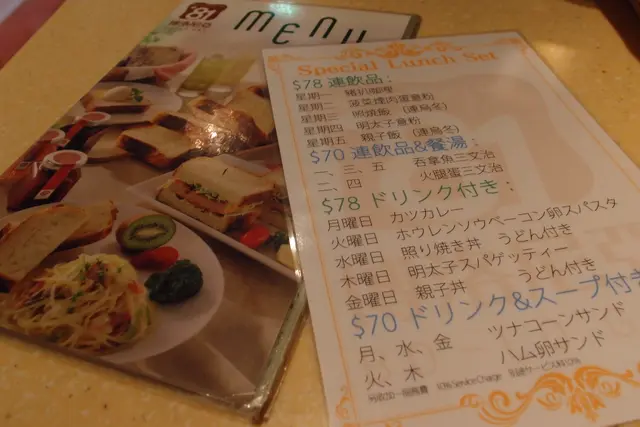 MENU
Special Lunch Set
$78 連飲品：
星期一 豬扒咖喱
星期二 菠菜煙肉蛋意粉
星期三 照燒飯 （連烏冬）
星期四 明太子意粉
星期五 親子飯 （連烏冬）
$70 連飲品&餐湯：
一、三、五 吞拿魚三文治
二、四 火腿蛋三文治
$78 ドリンク付き：
月曜日 カツカレー
火曜日 ホウレンソウベーコン卵スパスタ
水曜日 照り焼き丼 うどん付き
木曜日 明太子スパゲッティー
金曜日 親子丼 うどん付き
$70 ドリンク&スープ付き
月、水、金 ツナコーンサンド
火、木 ハム卵サンド
另收加一服務費 10% Service Charge 別途サービス料10%